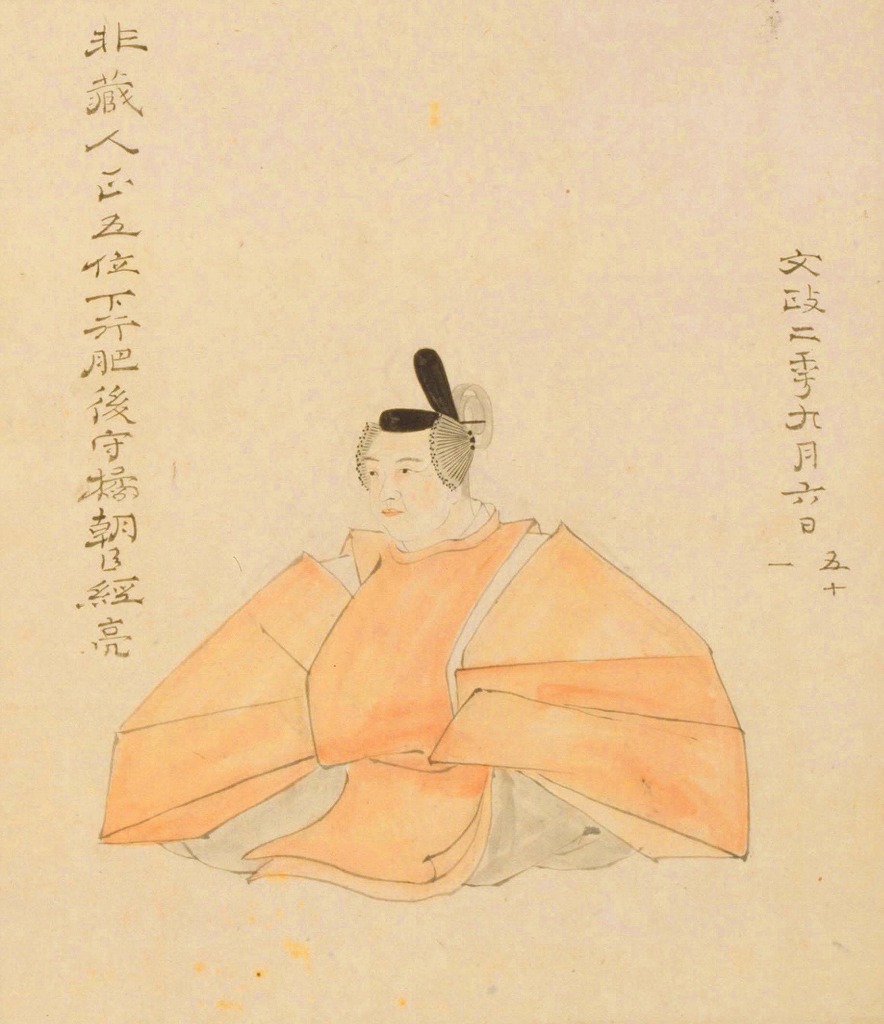 文政二年九月六日
五十
一
非蔵人正五位下行肥後守橋朝臣経亮